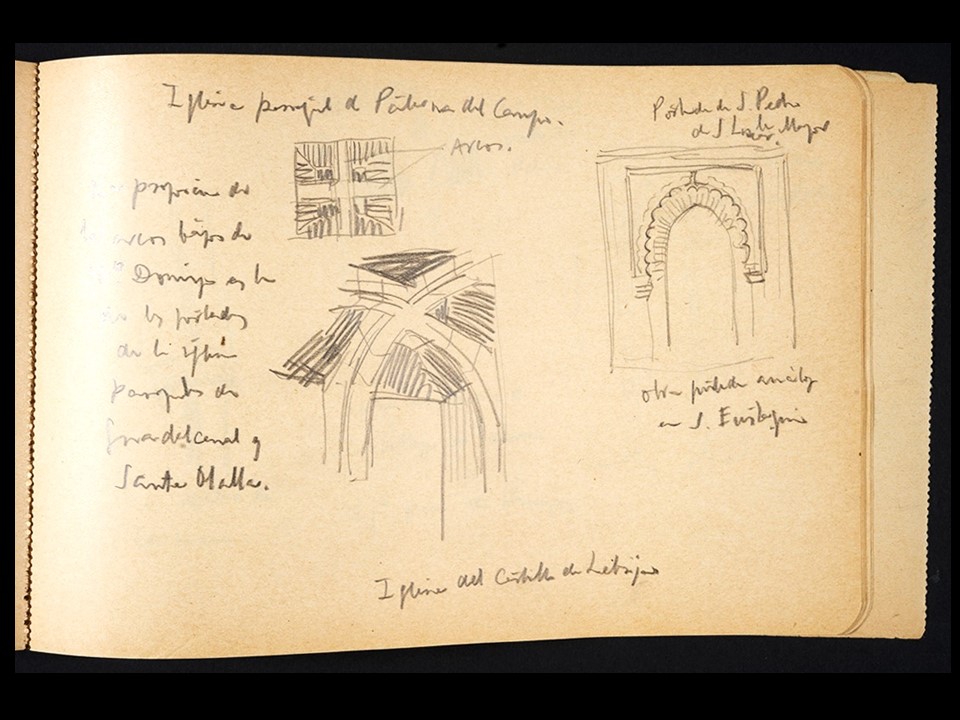 Iglesia parroquial de Paterna del Campo.
Arcos.
Portada de S. Pedro
de S Lucar la Mayor
propia de
arcos bajos de
Domingo es la
de las portadas
de la iglesia
parroquial de
Guadalcanal y
Santa Olalla.
otra portada análoga
en S. Eustaquio
Iglesia del Castillo de Lebrija